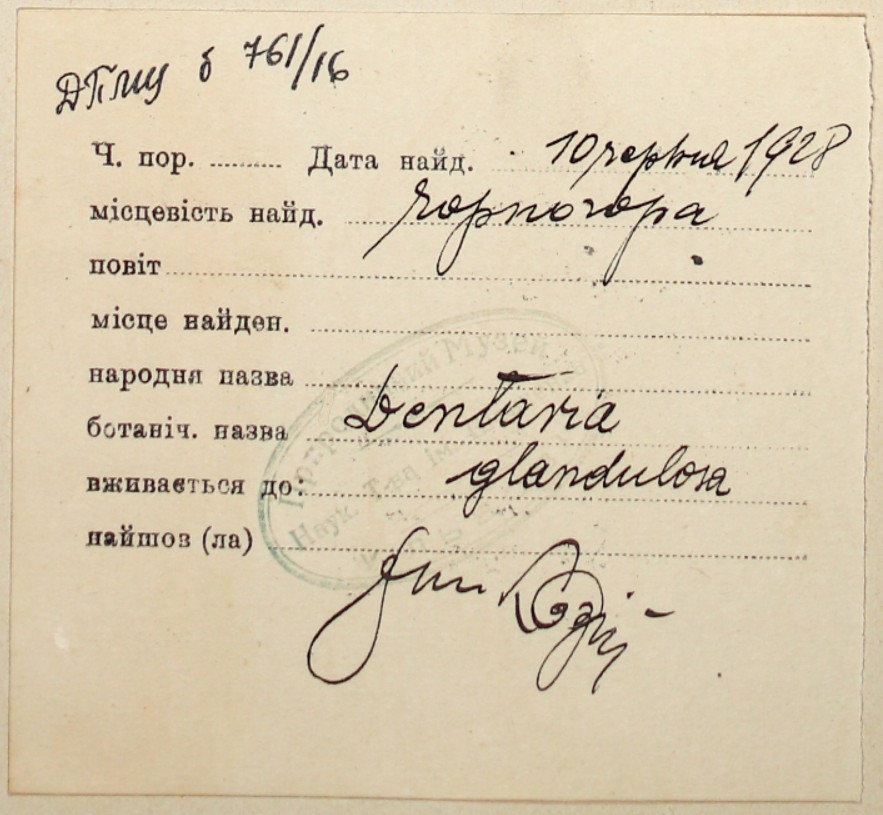 ДПМЦ б 761/16
Ч. пор. .......... Дата найд. 10 червня 1928
місцевість найд. Чорногора
повіт
місце найден.
народня назва
ботаніч. назва Dentaria
вживається до: glandulosa
найшоз (ла)
Природничий Музей
Наук. Т-ва ім.